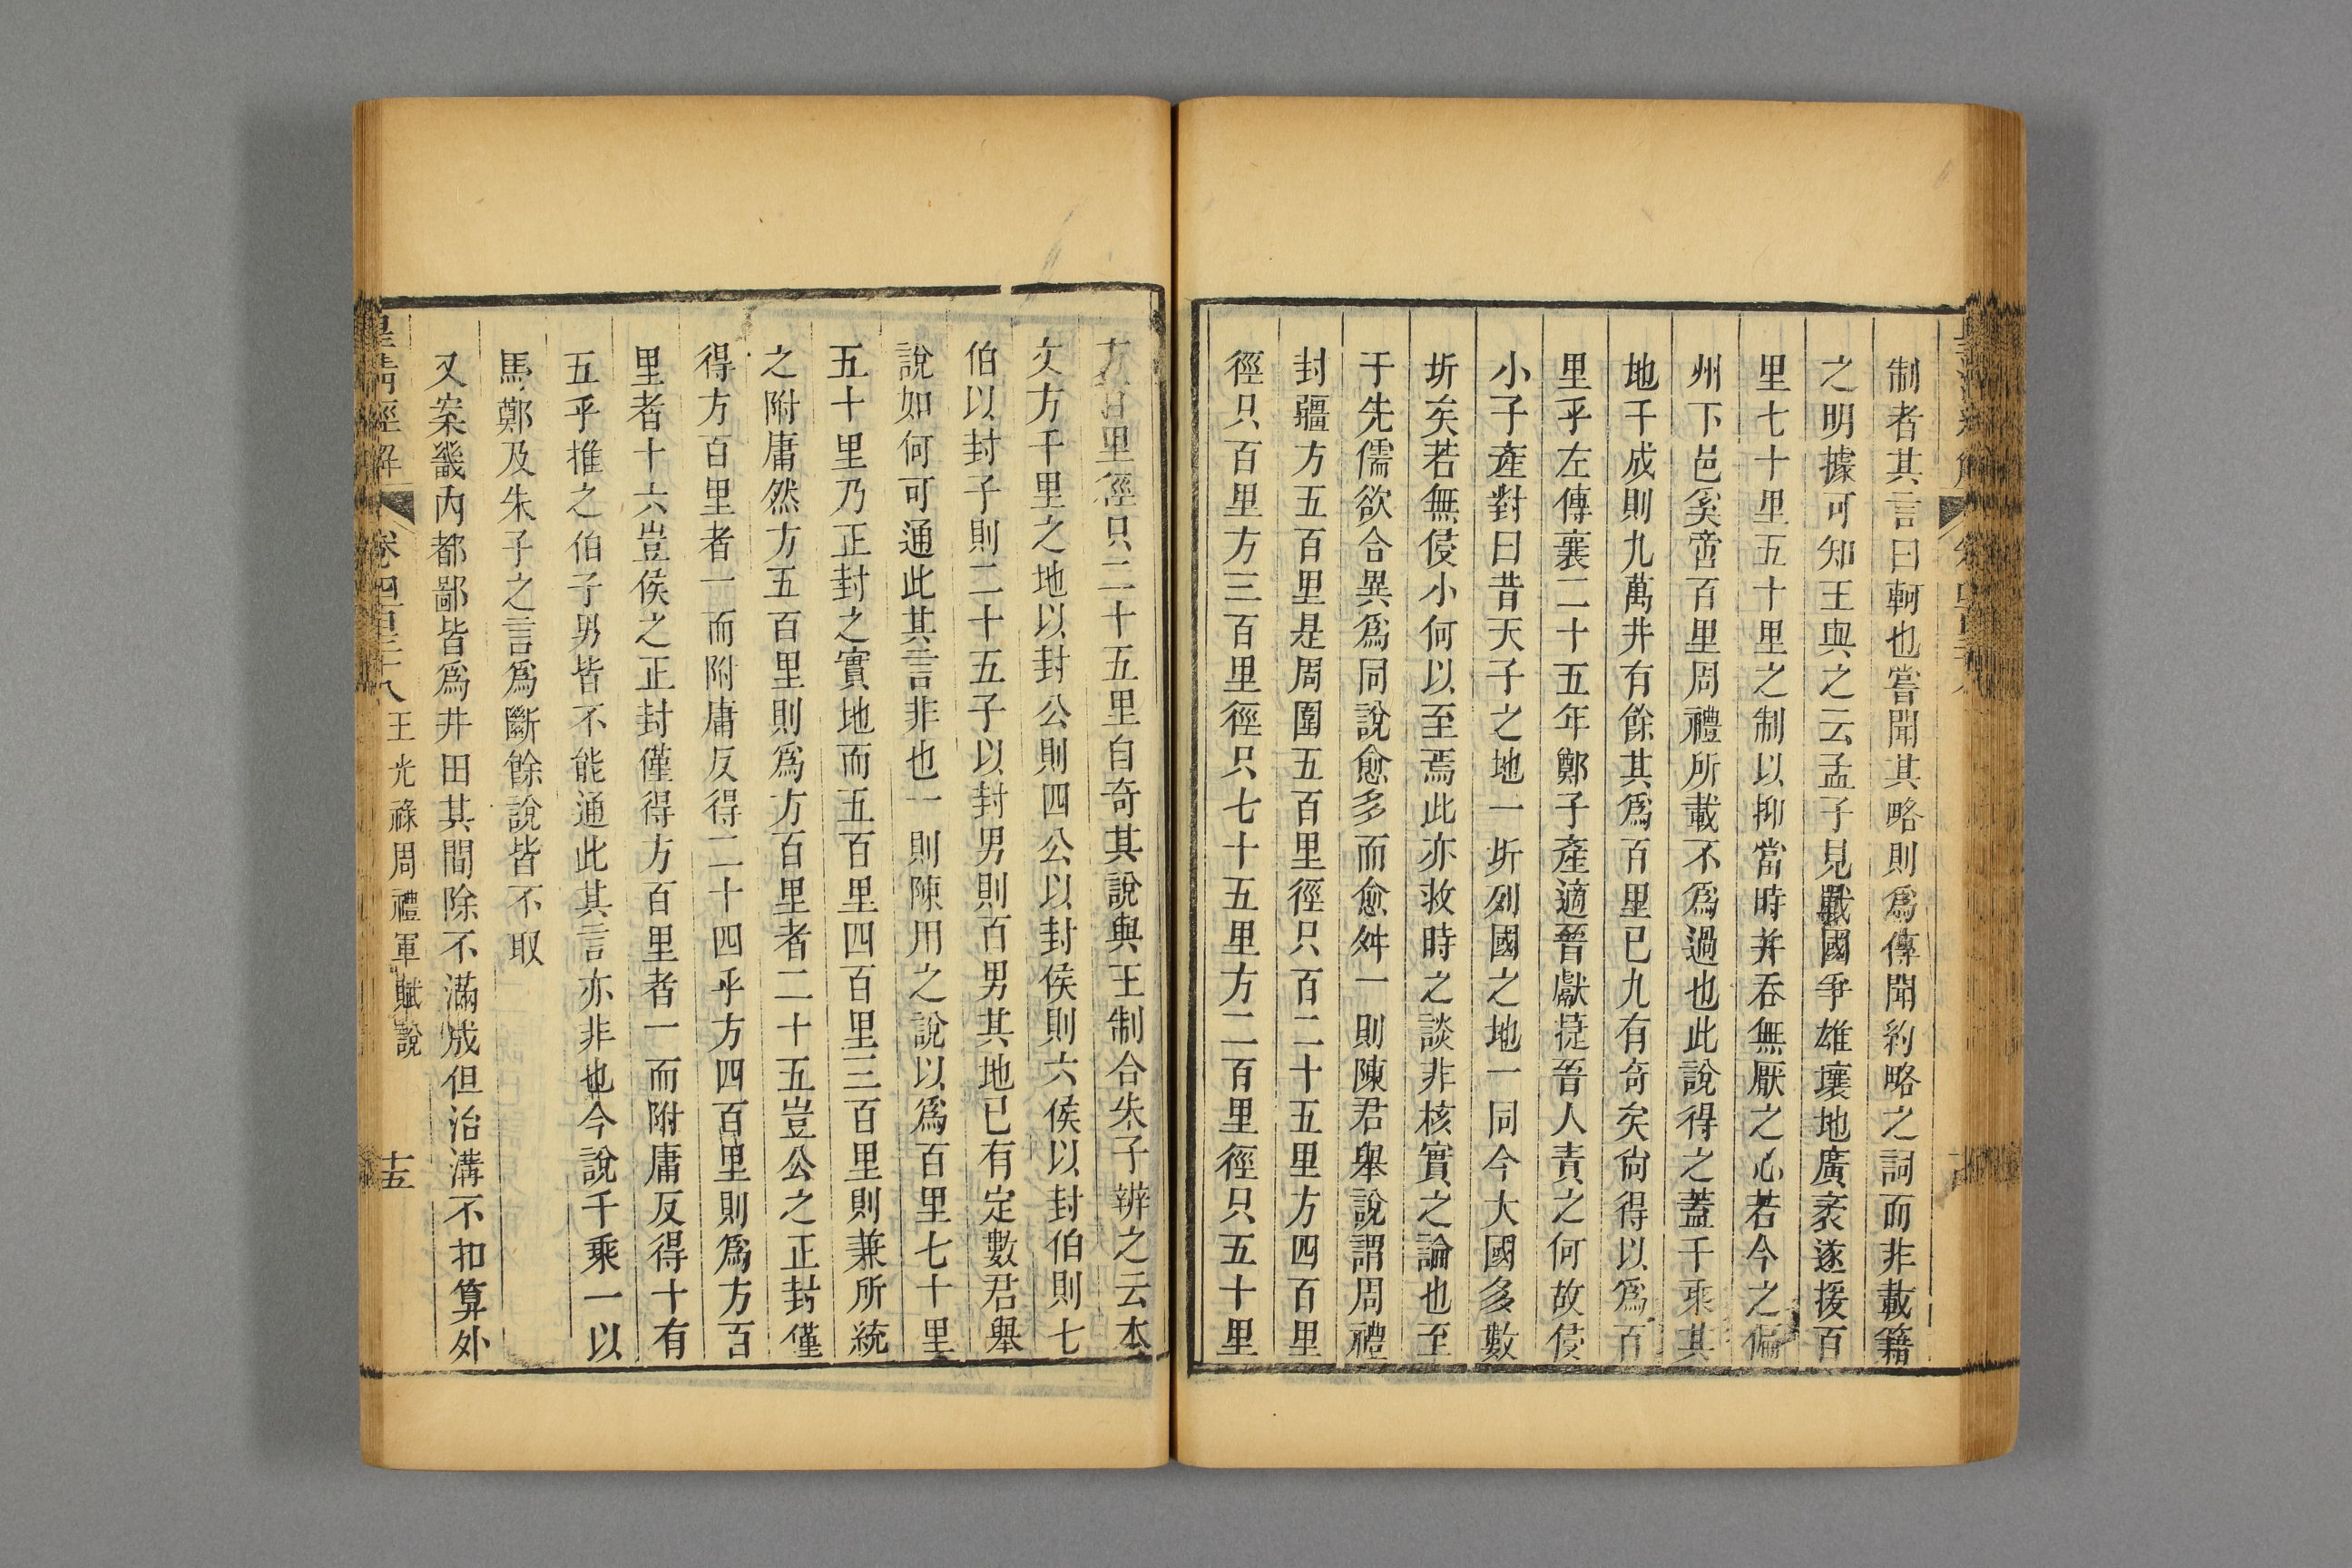 制者其言曰軻也嘗聞其略則爲傳聞約略之詞而非載籍
之明據可知王與之云孟子見戰國爭雄壤地廣袤遂援百
里七十里五十里之制以抑當時并吞無厭之心若今之偏
州下邑奚啻百里周禮所載不爲過也此說得之蓋千乘其
地千成則九萬井有餘其爲百里已九有奇矣尙得以爲百
里乎左傳襄二十五年鄭子產適晉獻捷晉人責之何故侵
小子產對曰昔天子之地一圻列國之地一同今大國多數
圻矣若無侵小何以至焉此亦救時之談非核實之論也至
于先儒欲合異爲同說愈多而愈舛一則陳君舉說謂周禮
封疆方五百里是周圍五百里徑只百二十五里方四百里
徑只百里方三百里徑只七十五里方二百里徑只五十里
方百里徑只二十五里自奇其說與王制合朱子辨之云本
文方千里之地以封公則四公以封侯則六侯以封伯則七
伯以封子則二十五子以封男則百男其地已有定數君舉
說如何可通此其言非也一則陳用之說以爲百里七十里
五十里乃正封之實地而五百里四百里三百里則兼所統
之附庸然方五百里則爲方百里者二十五豈公之正封僅
得方百里者一而附庸反得二十四乎方四百里則爲方百
里者十六豈侯之正封僅得方百里者一而附庸反得十有
五乎推之伯子男皆不能通此其言亦非也今說千乘一以
馬鄭及朱子之言爲斷餘說皆不取
又案畿內都鄙皆爲井田其間除不滿成但治溝不扣算外
皇清經解 卷四百二十八 王光祿周禮軍賦說 十五